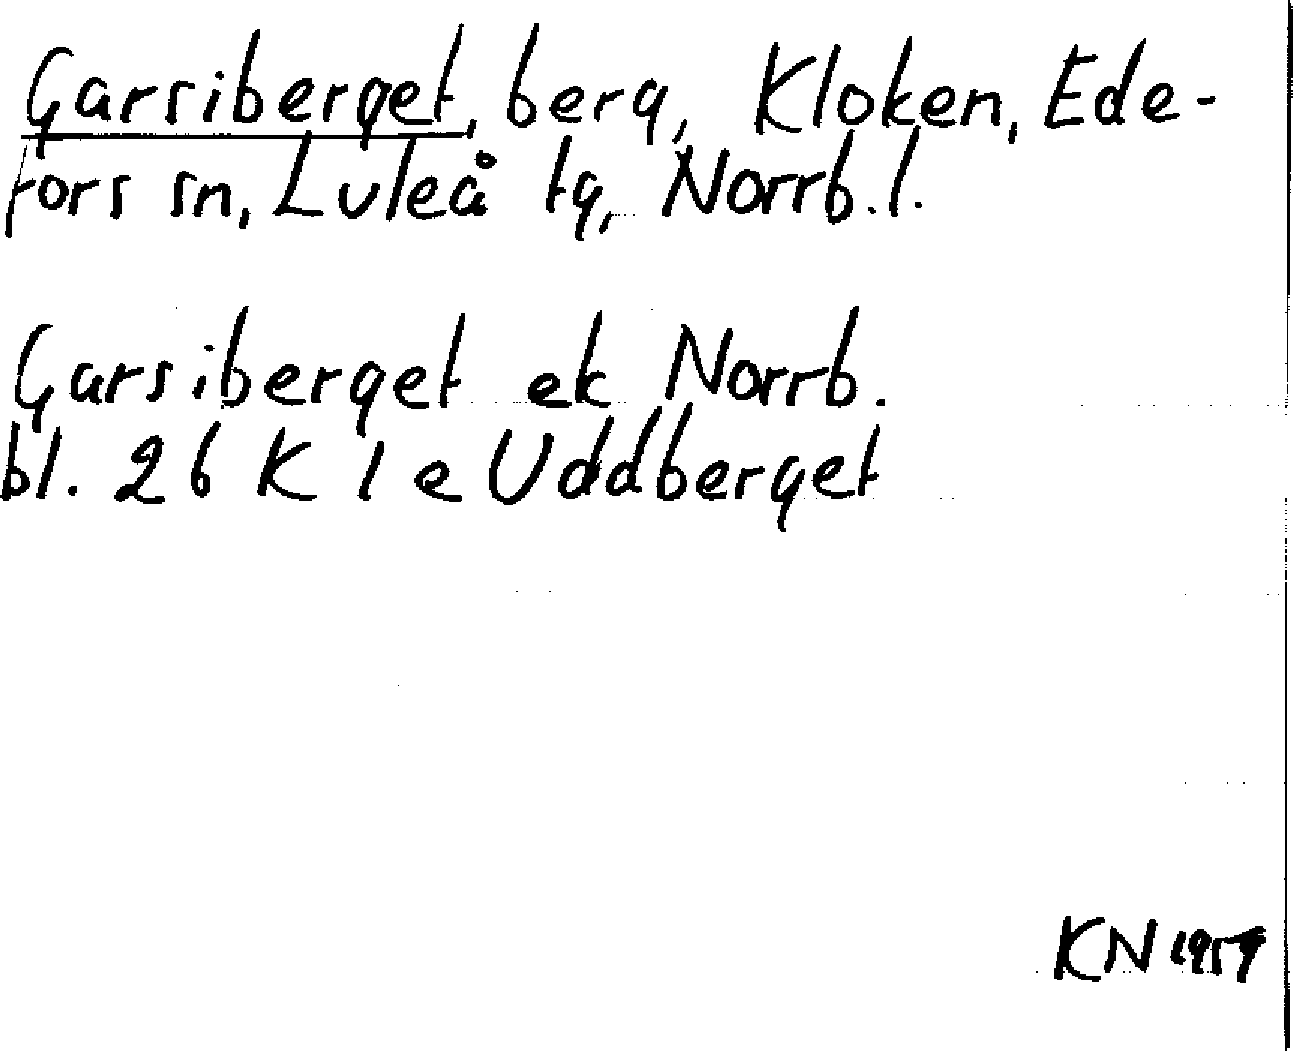 Garsiberget, berg, Kloken, Ede-
fors sn, Luleå tg, Norrb.l.
Garsiberget ek Norrb.
bl. 26 K 1 e Uddberget
KN 1959